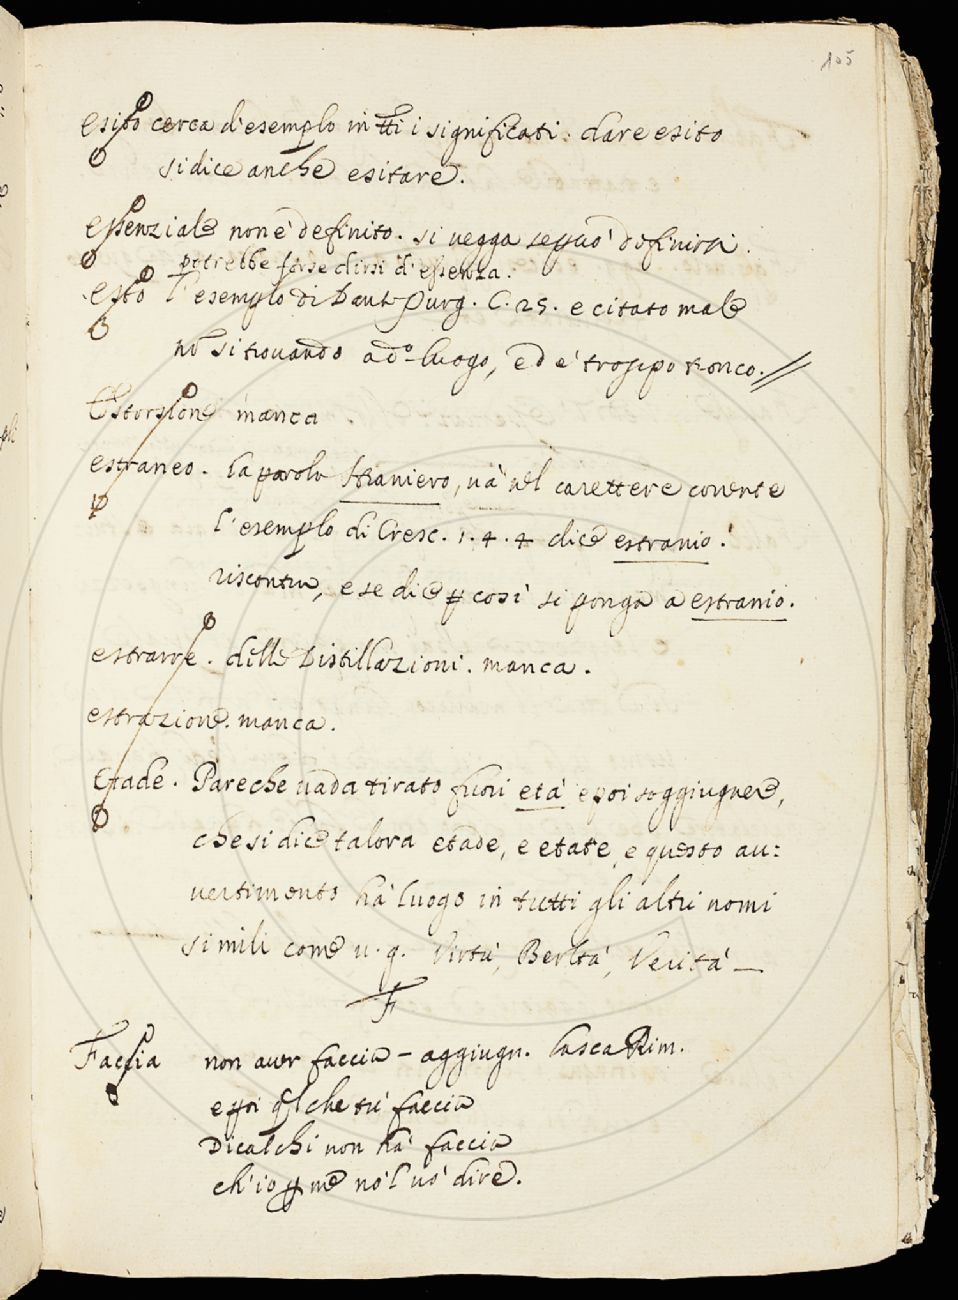 105
esito cerca d'esemplo in tti i significati. dare esito
si dice anche esitare.
essenziale non è definito. si uegga se può definirsi.
potrebbe forse dirsi d'essenza.
esto l'esemplo di Dante Purg. C. 25. e citato male
nō si trouando a do luogo, ed e' troppo tronco.
Estorsione manca
estraneo. la parola straniero, uà nel carettere corente
l'esemplo di Cresc. 1. 4. 4 dice estranio.
riscontra, e se dice così si ponga a estranio.
estrarre. delle Distillazioni. manca.
estrazione. manca.
Etade. Pare che uada tirato fuori età e poi soggiugnere,
che si dice talora etade, e etate, e questo au:
uertimento hà luogo in tutti gli altri nomi
simili come u. g. Virtù, Berltà, Verità —
F
Faccia non auer faccia – aggiugn. Lasca Rim.
e poi ql che tù faccia
Dical chi non hà faccia
ch'io p me nò 'l uò dire.